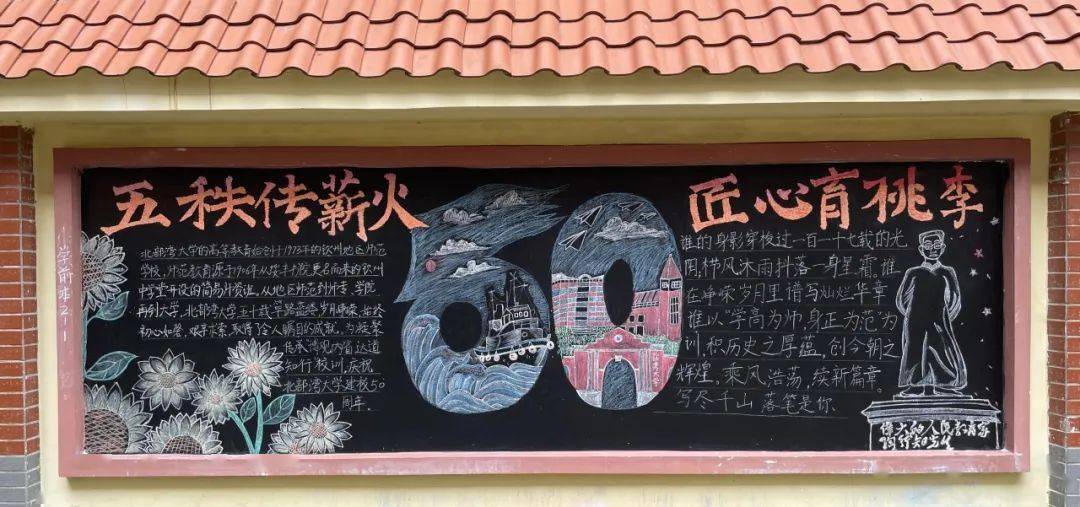 五秩传薪火
匠心育桃李
50
小学前本211
北部湾大学的高等教育始创于1973年的钦州地区师范
学校，师范教育源于1906年从绥丰书院更名而来的钦州
中学堂开设的简易师资班，从地区师范到师专、学院
再到大学，北部湾大学五十载筚路蓝缕岁月峥嵘，始终
初心如磐，艰辛求索，取得了令人瞩目的成就。为
传承鸿观内省达道
知行校训，庆祝
北部湾大学建校50
周年。
谁的身影穿梭过一百一十七载的光
阴，栉风沐雨抖落一身星霜。谁
在峥嵘岁月里谱写灿烂华章
谁以“学高为帅，身正为范”为
训，积历史之厚蕴，创今朝之
辉煌，乘风浩荡，续新篇章。
写尽千山 落笔是你
伟大的人民教育家
陶行知先生